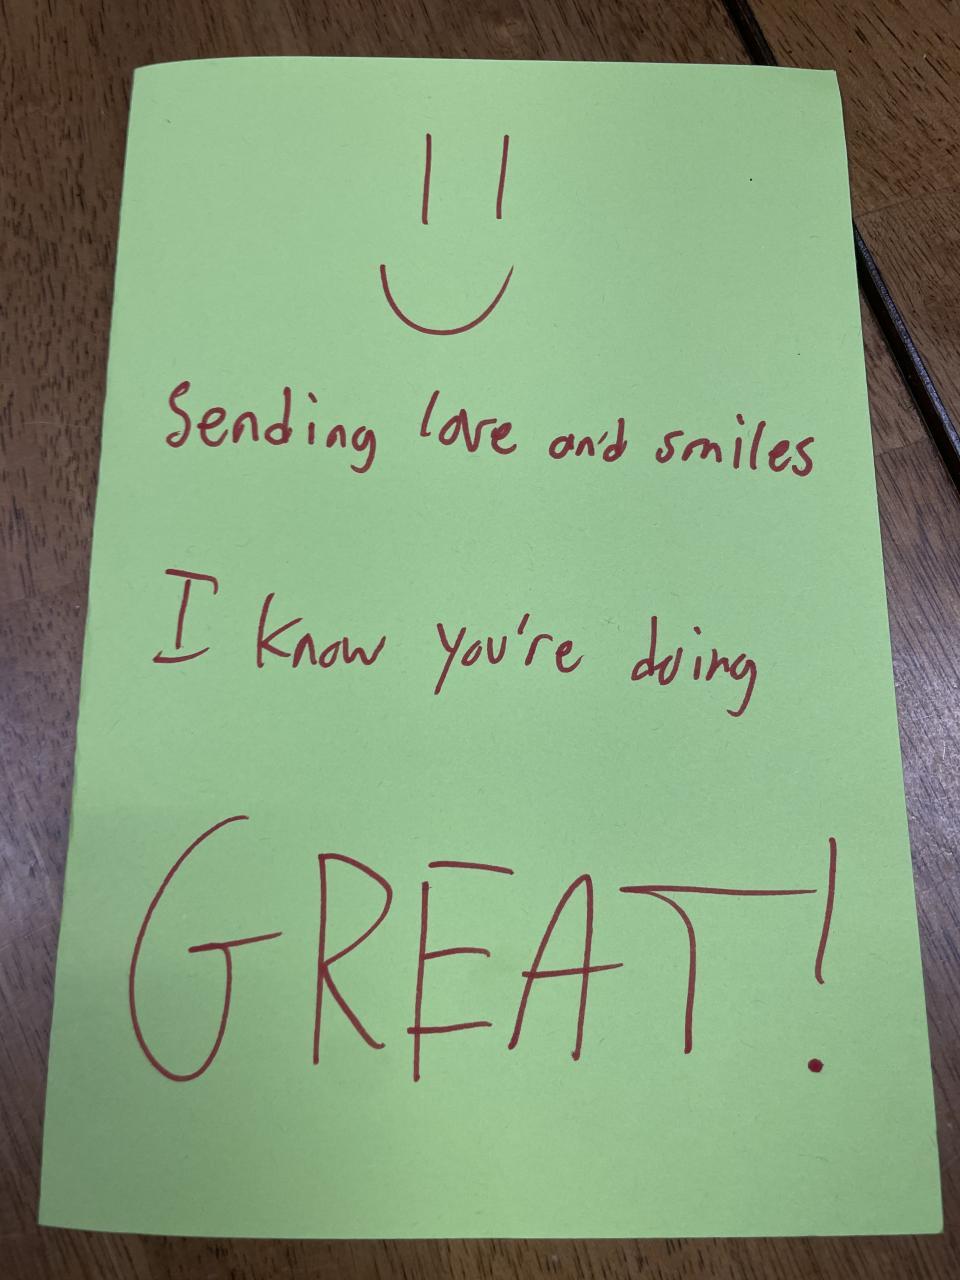 Sending love and smiles
I know you're doing
GREAT!